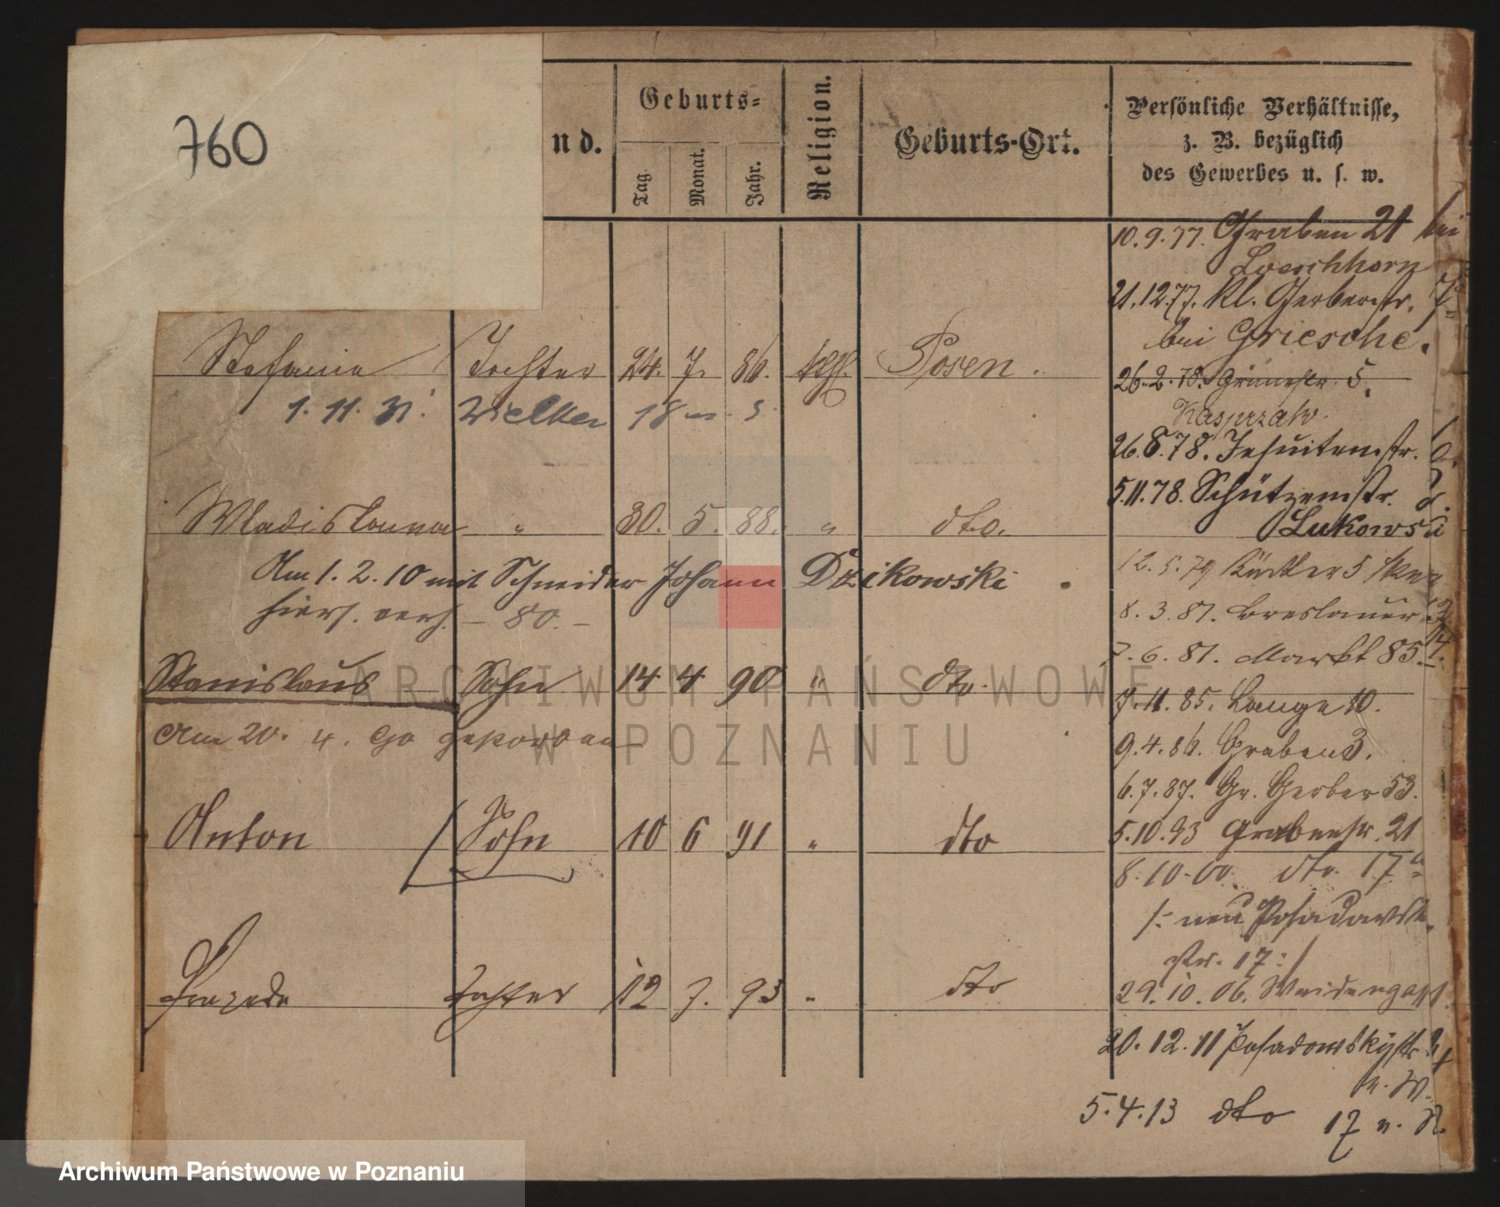 760
nd.
Geburts=
Tag.
Monat.
Jahr.
Religion.
Geburts-Ort.
Persönliche Verhältnisse,
z. B. bezüglich
des Gewerbes u. s. w.
Stefania Tochter 24. 7. 86. kath. Posen.
1. 11. 31.
Wladislawa " 30. 5. 88. " dto.
Am 1. 2. 10 mit Schneider Johann Dzikowski
hiers. verh. – 80. –
Stanislaus Sohn 14 4 90 " dto.
Am 20. 4. 90 gestorben
Anton Sohn 10 6 91 " dto
Tochter 12 7. 93 " dto
10. 9. 77. Graben 21 bei
Loerchhorn
21. 12 77. Kl. Gerberstr. 7
bei Griesche.
26. 2. 78. Grünestr. 5.
Kasprzak.
26. 8. 78. Jesuitenstr.
5. 11. 78. Schützenstr.
Lukowski
12. 5. 79
8. 3. 81. Breslauer
7. 6. 81. Markt 85.
7. 11. 85. Lange 10.
9. 4. 86. Graben 3.
6. 7. 87. Gr. Gerber 53.
5. 10. 93 Grabenstr. 21
8. 10. 00. dto. 17a
/: neu Posadowsky
str. 17 :/
29. 10. 06. Weidengasse
20. 12. 11 Posadowskystr.
5. 4. 13 dto 17
ARCHIWUM PAŃSTWOWE
W POZNANIU
Archiwum Państwowe w Poznaniu